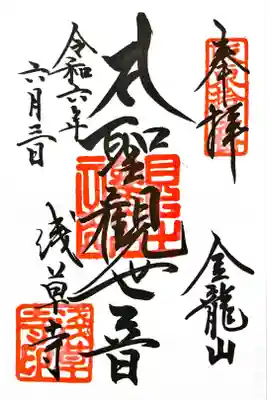 奉拝
金龍山
聖觀世音
令和六年
六月三日
浅草寺